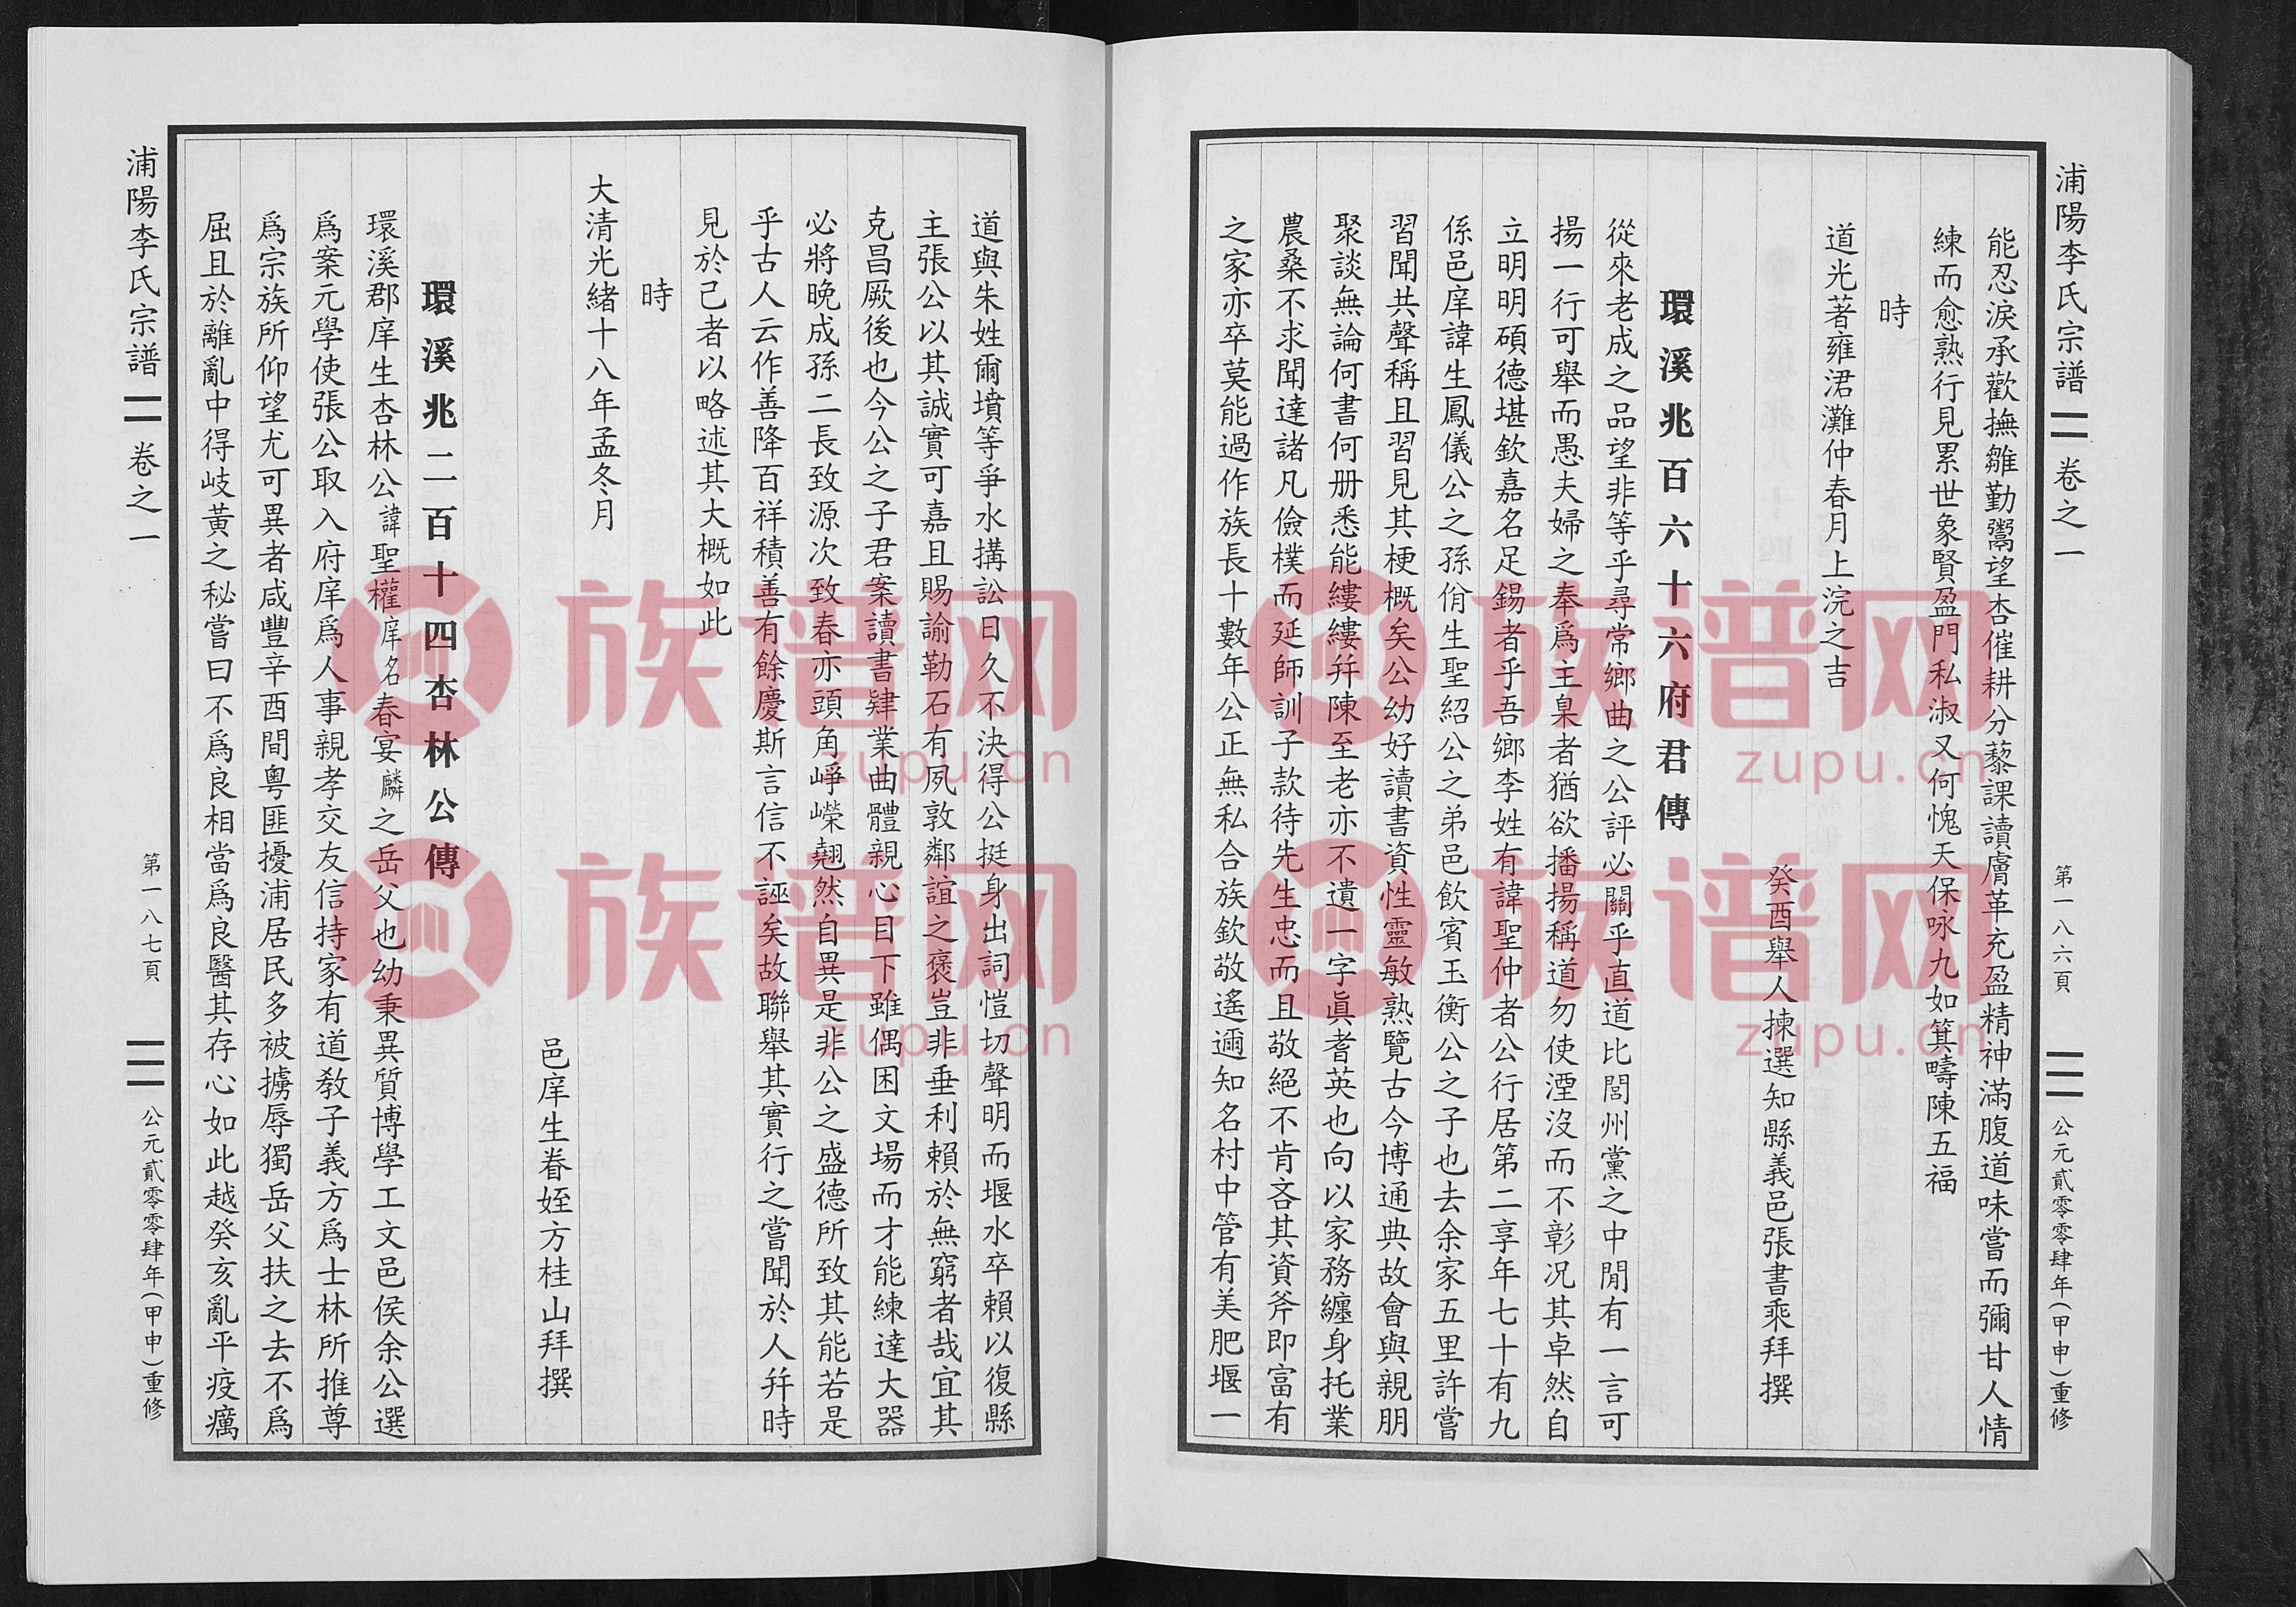 浦陽李氏宗譜 卷之一 第一八六頁 公元貳零零肆年(甲申)重修
能忍淚承歡撫雛勤鬻望杏催耕分藜課讀膚革充盈精神滿腹道味嘗而彌甘人情
練而愈熟行見累世象賢盈門私淑又何愧天保咏九如箕疇陳五福
時
道光著雍涒灘仲春月上浣之吉
癸酉舉人揀選知縣義邑張書乘拜撰
環溪兆百六十六府君傳
從來老成之品望非等乎尋常鄉曲之公評必關乎直道比閭州黨之中閒有一言可
揚一行可舉而愚夫婦之奉爲主臬者猶欲播揚稱道勿使湮沒而不彰况其卓然自
立明明碩德堪欽嘉名足錫者乎吾鄉李姓有諱聖仲者公行居第二享年七十有九
係邑庠諱生鳳儀公之孫佾生聖紹公之弟邑飲賓玉衡公之子也去余家五里許嘗
習聞共聲稱且習見其梗概矣公幼好讀書資性靈敏熟覽古今博通典故會與親朋
聚談無論何書何册悉能縷縷幷陳至老亦不遺一字眞耆英也向以家務纏身托業
農桑不求聞達諸凡儉樸而延師訓子款待先生忠而且敬絕不肯吝其資斧即富有
之家亦卒莫能過作族長十數年公正無私合族欽敬遙邇知名村中管有美肥堰一
道與朱姓爾墳等爭水搆訟日久不決得公挺身出詞愷切聲明而堰水卒賴以復縣
主張公以其誠實可嘉且賜諭勒石有夙敦鄰誼之褒豈非垂利賴於無窮者哉宜其
克昌厥後也今公之子君案讀書肄業曲體親心目下雖偶困文場而才能練達大器
必將晚成孫二長致源次致春亦頭角崢嶸翹然自異是非公之盛德所致其能若是
乎古人云作善降百祥積善有餘慶斯言信不誣矣故聯舉其實行之嘗聞於人幷時
見於己者以略述其大概如此
時
大清光緒十八年孟冬月
邑庠生眷姪方桂山拜撰
環溪兆二百十四杏林公傳
環溪郡庠生杏林公諱聖權庠名春宴麟之岳父也幼秉異質博學工文邑侯余公選
爲案元學使張公取入府庠爲人事親孝交友信持家有道教子義方爲士林所推尊
爲宗族所仰望尤可異者咸豐辛酉間粵匪擾浦居民多被擄辱獨岳父扶之去不爲
屈且於離亂中得岐黃之秘嘗曰不爲良相當爲良醫其存心如此越癸亥亂平疫癘
浦陽李氏宗譜 卷之一 第一八七頁 公元貳零零肆年(甲申)重修
族谱网
zupu.cn
族谱网
zupu.cn
族谱网
zupu.cn
族谱网
zupu.cn